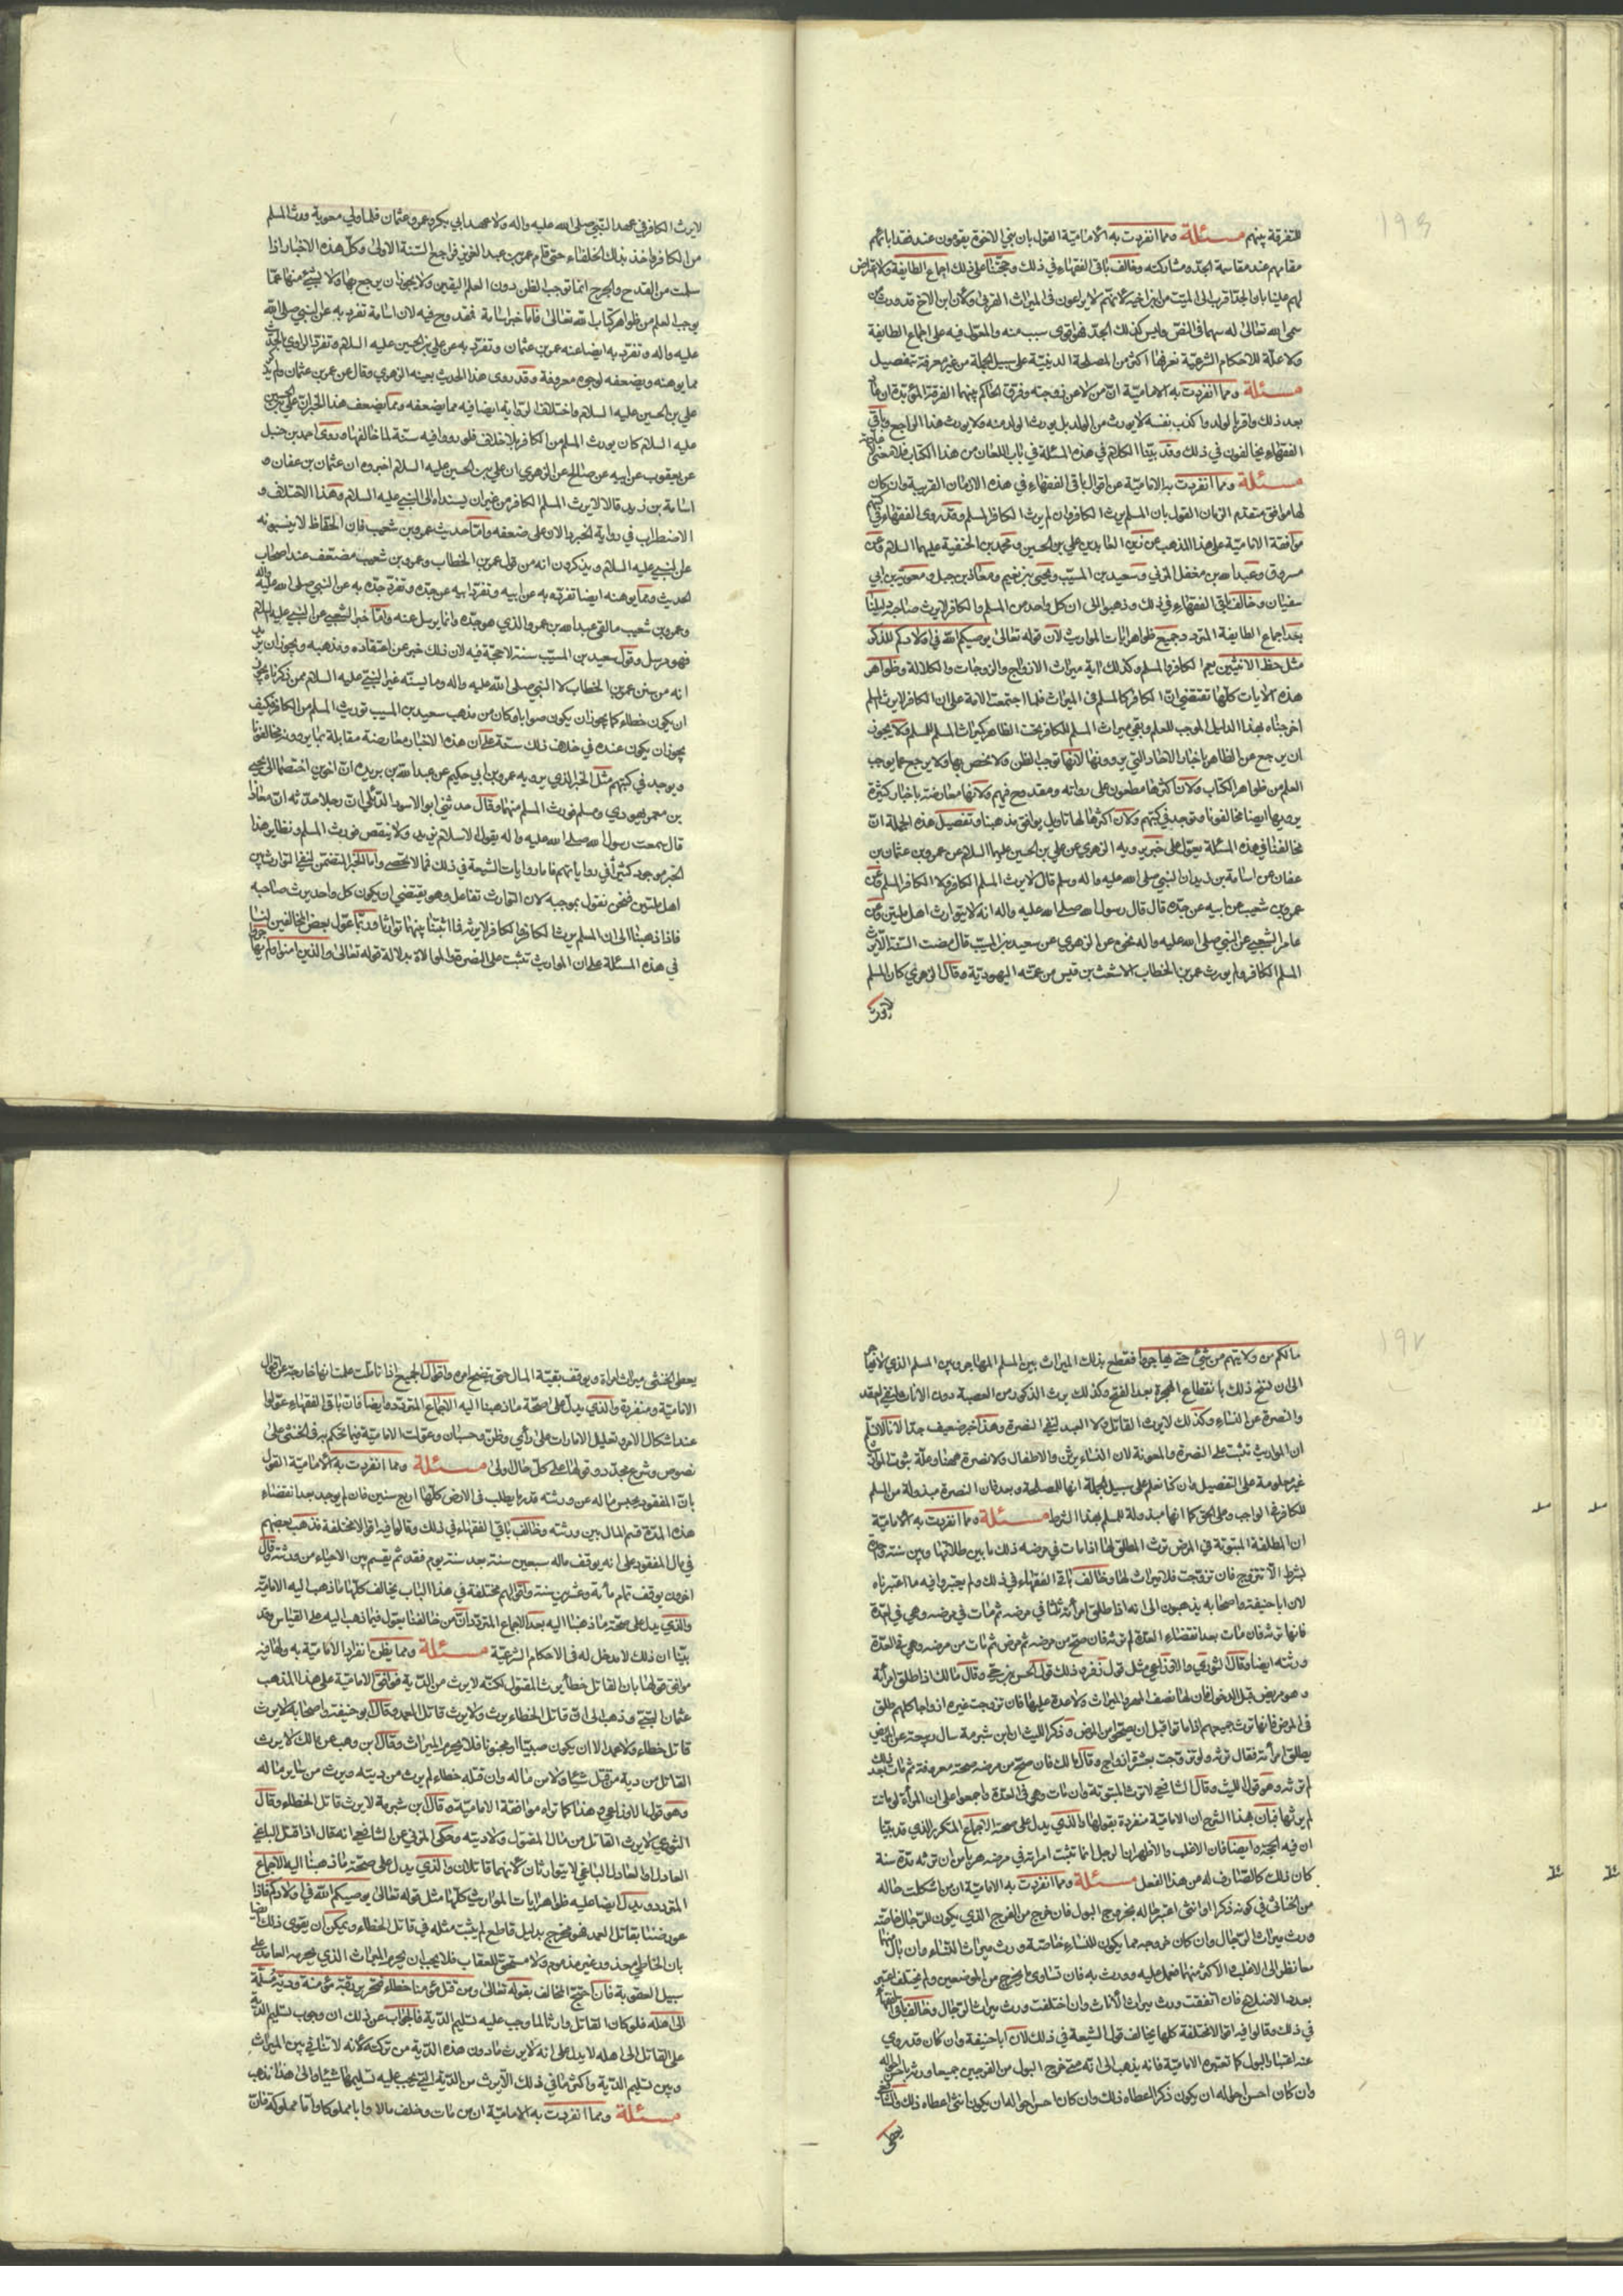 ١٩٦
للتفرقة بينهم مسئلة ومما انفردت به الامامية القول بان بني الاخوة يقومون عند فقد ابائهم
مقامهم عند مقاسمة الجد ومشاركته وخالف باقى الفقهاء في ذلك وحجتنا على ذلك اجماع الطايفة ولا اعتراض
لهم علينا بان الجد اقرب الى الميت من ابن اخيه لانهم لا يراعون في الميراث القربى ولان ابن الاخ قد ورث من
سمى الله تعالى له سهما في النص وليس كذلك الجد فهو اقوى سببا منه والمعول فيه على اجماع الطايفة
ولا علة للاحكام الشرعية نعرفها اكثر من المصلحة الدينية على سبيل الجملة من غير معرفة تفصيل
مسئلة ومما انفردت به الامامية ان من لاعن زوجته وفرق الحاكم بينهما الفرقة المؤبدة ان عاد
بعد ذلك واقر بالولد واكذب نفسه لا يورث من الولد بل يورث الولد منه ولا يورث هذا الراجع وباقي
الفقهاء يخالفون في ذلك وقد بينا الكلام في هذه المسئلة في باب اللعان من هذا الكتاب فلا معنى لاعادته
مسئلة ومما انفردت به الامامية عن اقوال باقى الفقهاء في هذه الازمان القريبة وان كان
لها موافق متقدم الزمان القول بان المسلم يرث الكافر وان لم يرث الكافر المسلم وقد روى الفقهاء في كتبهم
موافقة الامامية على هذا المذهب عن زين العابدين علي بن الحسين ومحمد بن الحنفية عليهما السلام وعن
مسروق وعبد الله بن مغفل المزني وسعيد بن المسيب ويحيى بن يعمر ومعاذ بن جبل ومعوية بن ابي
سفيان وخالف باقى الفقهاء في ذلك وذهبوا الى ان كل واحد من المسلم والكافر لا يرث صاحبه دليلنا
بعد اجماع الطايفة المتردد جميع ظواهر ايات المواريث لان قوله تعالى يوصيكم الله في اولادكم للذكر
مثل حظ الانثيين يعم الكافر والمسلم وكذلك اية ميراث الازواج والزوجات والكلالة وظواهر
هذه الايات كلها تقتضي ان الكافر كالمسلم في الميراث فلما اجتمعت الامة على ان الكافر لا يرث المسلم
اخرجناه بهذا الدليل الموجب للعلم وبقي ميراث المسلم للكافر تحت الظاهر كميراث المسلم للمسلم ولا يجوز
ان يرجع عن الظاهر باخبار الاحاد التي يروونها لانها توجب الظن ولا يخص بها ولا يرجع عما يوجب
العلم من ظواهر الكتاب ولان اكثرها مطعون على رواته ومقدوح فيهم ولانها معارضة باخبار كثيرة
يرويها ايضا مخالفونا وتوجد في كتبهم ولان اكثرها لها تاويل يوافق مذهبنا وتفصيل هذه الجملة ان
مخالفنا في هذه المسئلة يعول على خبر يرويه الزهري عن علي بن الحسين عليهما السلام عن عمرو بن عثمان بن
عفان عن اسامة بن زيد ان النبي صلى الله عليه واله وسلم قال لا يرث المسلم الكافر ولا الكافر المسلم وعن
عمرو بن شعيب عن ابيه عن جده قال قال رسول الله صلى الله عليه واله انه لا يتوارث اهل ملتين وعن
عامر الشعبي عن النبي صلى الله عليه واله نحوه عن الزهري عن سعيد بن المسيب قال مضت السنة الا يرث
المسلم الكافر ولم يورث عمر بن الخطاب الاشعث بن قيس من عمته اليهودية وقال الزهري كان المسلم
لا يرث
لا يرث الكافر في عهد النبي صلى الله عليه واله ولا عهد ابي بكر وعمر وعثمان فلما ولي معوية ورث المسلم
من الكافر واخذ بذلك الخلفاء حتى قام عمر بن عبد العزيز فراجع السنة الاولى وكل هذه الاخبار اذا
سلمت من القدح والجرح انما توجب الظن دون العلم اليقين ولا يجوز ان يرجع بها ولا بشئ منها عما
يوجب العلم من ظواهر كتاب الله تعالى فاما خبر اسامة فمقدوح فيه لان اسامة تفرد به عن النبي صلى الله
عليه واله وتفرد به ايضا عنه عمر بن عثمان وتفرد به عن علي بن الحسين عليه السلام وتفرد الراوي بالحديث
مما يوهنه ويضعفه لوجوه معروفة وقد روى هذا الحديث بعينه الزهري وقال عن عمر بن عثمان ولم يذكر
علي بن الحسين عليه السلام واختلاف الرواية ايضا فيه مما يضعفه ومما يضعف هذا الخبر ان علي بن الحسين
عليه السلام كان يورث المسلم من الكافر بلا خلاف فلو روى فيه سنة لما خالفها وروى احمد بن حنبل
عن يعقوب عن ابيه عن صالح عن الزهري ان علي بن الحسين عليه السلام اخبره ان عثمان بن عفان و
اسامة بن زيد قالا لا يرث المسلم الكافر من غير ان يسنداه الى النبي عليه السلام وهذا الاختلاف و
الاضطراب في رواية الخبر دالان على ضعفه واما حديث عمرو بن شعيب فان الحفاظ لا ينسبونه
على النبي عليه السلام ويذكرون انه من قول عمر بن الخطاب وعمرو بن شعيب مضعف عند اصحاب
الحديث ومما يوهنه ايضا تفرده به عن ابيه وتفرد ابيه عن جده وتفرد جده به عن النبي صلى الله عليه واله
وعمرو بن شعيب ما لقى عبد الله بن عمرو الذي هو جده وانما يرسل عنه واما خبر الشعبي عن النبي عليه السلام
فهو مرسل وقول سعيد بن المسيب سنة لا حجة فيه لان ذلك خبر عن اعتقاده ومذهبه ويجوز ان يريد
انه من سنن عمر بن الخطاب لا النبي صلى الله عليه واله وما يسنه غير النبي عليه السلام ممن ذكرناه يجوز
ان يكون خطاء كما يجوز ان يكون صوابا وكان من مذهب سعيد بن المسيب توريث المسلم من الكافر فكيف
يجوز ان يكون عنده في خلاف ذلك سنة على ان هذه الاخبار معارضة مقابلة بما يرويه مخالفونا
ويوجد في كتبهم مثل الخبر الذي يرويه عمرو بن ابي حكيم عن عبد الله بن بريدة ان اخوين اختصما الى يحيى
بن معمر يهودي ومسلم فورث المسلم منهما وقال حدثني ابو الاسود الدئلي ان رجلا حدثه ان معاذا
قال سمعت رسول الله صلى الله عليه واله يقول الاسلام يزيد ولا ينقص فورث المسلم ونظاير هذا
الخبر موجود كثيرا في رواياتهم فاما روايات الشيعة في ذلك فمما لا يحصى واما الخبر المتضمن لنفي التوارث بين
اهل ملتين فنحن نقول بموجبه لان التوارث تفاعل وهو يقتضي ان يكون كل واحد يرث صاحبه
فاذا ذهبنا الى ان المسلم يرث الكافر والكافر لا يرثه فما اثبتنا بينهما توارثا وربما عول بعض المخالفين لنا
في هذه المسئلة على ان المواريث تثبت على النصرة والموالاة بدلالة قوله تعالى والذين امنوا ولم يهاجروا
١٩٧
مالكم من ولايتهم من شئ حتى يهاجروا فقطع بذلك الميراث بين المسلم المهاجر وبين المسلم الذي لا يهاجر
الى ان نسخ ذلك بانقطاع الهجرة بعد الفتح وكذلك يرث الذكور من العصبة دون الاناث لنفي العقد
والنصرة عن النساء وكذلك لا يرث القاتل ولا العبد لنفي النصرة وهذا خبر ضعيف جدا لانا لا نسلم
ان المواريث تثبت على النصرة والمعونة لان النساء يرثن والاطفال ولا نصرة ههنا وعلة ثبوت المواريث
غير معلومة على التفصيل وان كنا نعلم على سبيل الجملة انها للمصلحة وبعد فان النصرة مبذولة من المسلم
للكافر في الواجب وعلى الحق كما انها مبذولة للمسلم بهذا الشرط مسئلة ومما انفردت به الامامية
ان المطلقة المبتوتة في المرض ترث المطلق لها اذا مات في مرضه ذلك ما بين طلاقها وبين سنة واحدة
بشرط الا تتزوج فان تزوجت فلا ميراث لها وخالف باقى الفقهاء في ذلك ولم يعتبروا فيه ما اعتبرناه
لان ابا حنيفة واصحابه يذهبون الى انه اذا طلق امرأته ثلثا في مرضه ثم مات في مرضه وهي في العدة
فانها ترثه فان مات بعد انقضاء العدة لم ترثه فان صح من مرضه ثم مرض ثم مات من مرضه وهي في العدة
ورثته ايضا وقال الثوري والاوزاعي مثل قول زفر وذلك قول الحسن بن حي وقال مالك اذا طلق امرأة
وهو مريض قبل الدخول فان لها نصف المهر والميراث ولا عدة عليها فان تزوجت عشرة ازواجا كلهم طلق
في المرض فانها ترث جميعهم اذا ماتوا قبل ان يصحوا من المرض وذكر الليث ان ابن شبرمة سال ربيعة عن المريض
يطلق امرأته فقال ترثه ولو تزوجت بعشرة ازواج وقال مالك فان صح من مرضه صحة معروفة ثم مات بعد ذلك
لم ترثه وهو قول الليث وقال الشافعي لا ترث المبتوتة وان مات وهي في العدة واجمعوا على ان المرأة لو ماتت
لم يرثها فبان بهذا الشرح ان الامامية منفردة بقولها والذي يدل على صحته الاجماع المتكرر الذي قد بينا
ان فيه الحجة وايضا فان الاغلب والاظهر ان الرجل انما تثبت امرأته في مرضه هربا من ان ترثه مدة سنة
كان ذلك كالصارف له من هذا الفعل مسئلة ومما انفردت به الامامية ان من اشكلت حاله
من الخناثى في كونه ذكرا او انثى اعتبر حاله بخروج البول فان خرج من الفرج الذي يكون للرجال خاصة
ورث ميراث الرجال وان كان خروجه مما يكون للنساء خاصة ورث ميراث النساء وان بال منهما
معا نظر الى الاغلب والاكثر منهما فعمل عليه وورث به فان تساوى ما يخرج من الموضعين ولم يختلف اعتبر
بعدد الاضلاع فان اتفقت ورث ميراث الاناث وان اختلفت ورث ميراث الرجال وخالف باقى الفقهاء
في ذلك وقالوا فيه اقوالا مختلفة كلها يخالف قول الشيعة في ذلك لان ابا حنيفة وان كان قد روي
عنه اعتبار البول كما تعتبره الامامية فانه يذهب الى انه متى خرج البول من الفرجين جميعا ورثه باحسن احواله
وان كان احسن احواله ان يكون ذكرا اعطاه ذلك وان كان احسن احواله ان يكون انثى اعطاه ذلك والشافعي
يعطى
يعطى الخنثى ميراث امرأة ويوقف بقية المال حتى يتضح امره واقوال الجميع اذا تأملت علمت انها خارجة عن اقوال
الامامية ومنفردة والذي يدل على صحة ما ذهبنا اليه الاجماع المتردد وايضا فان باقى الفقهاء عولوا
عند اشكال الامر وتعليل الامارات على رأي وظن وحسبان وعولت الامامية فيما تحكم به في الخنثى على
نصوص وشرع محدد وقولها على كل حال اولى مسئلة ومما انفردت به الامامية القول
بان المفقود يحبس ماله عن ورثته قدر ما يطلب في الارض كلها اربع سنين فان لم يوجد بعد انقضاء
هذه المدة قسم المال بين ورثته وخالف باقى الفقهاء في ذلك وقالوا فيه اقوالا مختلفة فذهب بعضهم
في مال المفقود على انه يوقف ماله سبعين سنة بعد سنة يوم فقد ثم يقسم بين الاحياء من ورثته وقال
اخرون يوقف تمام مائة وعشرين سنة واقوالهم مختلفة في هذا الباب يخالف كلها ما ذهب اليه الامامية
والذي يدل على صحة ما ذهبنا اليه بعد الاجماع المتردد ان من خالفنا يعول فيما ذهب اليه على القياس وقد
بينا ان ذلك لا مدخل له في الاحكام الشرعية مسئلة ومما يظن انفراد الامامية به ولها فيه
موافق قولها بان القاتل خطأ يرث المقتول لكنه لا يرث من الدية ووافق الامامية على هذا المذهب
عثمان البتي وذهب الى ان قاتل الخطاء يرث ولا يرث قاتل العمد وقال ابو حنيفة واصحابه لا يرث
قاتل خطاء ولا عمد الا ان يكون صبيا او مجنونا فلا يحرم الميراث وقال ابن وهب عن مالك لا يرث
القاتل من دية من قتل شيئا ولا من ماله وان قتله خطاء لم يرث من ديته ويرث من ساير ماله
وهو قول الاوزاعي وهذا كما تراه موافقة الامامية وقال ابن شبرمة لا يرث قاتل الخطاء وقال
الثوري لا يرث القاتل من مال المقتول ولا ديته وحكى المزني عن الشافعي انه قال اذا قتل الباغي
العادل او العادل الباغي لا يتوارثان لانهما قاتلان والذي يدل على صحة ما ذهبنا اليه الاجماع
المتردد ويدل ايضا عليه ظواهر ايات المواريث كلها مثل قوله تعالى يوصيكم الله في اولادكم فاذا
عورضنا بقاتل العمد فهو مخرج بدليل قاطع لم يثبت مثله في قاتل الخطاء ويمكن ان يقوى ذلك ايضا
بان الخاطي معذور غير مذموم ولا مستحق للعقاب فلا يجب ان يحرم الميراث الذي يحرمه العامد على
سبيل العقوبة فان احتج المخالف بقوله تعالى ومن قتل مؤمنا خطاء فتحرير رقبة مؤمنة ودية مسلمة
الى اهله فلو كان القاتل وارثا لما وجب عليه تسليم الدية فالجواب عن ذلك ان وجوب تسليم الدية
على القاتل الى اهله لا يدل على انه لا يرث ما دون هذه الدية من تركته لانه لا تنافي بين الميراث
وبين تسليم الدية واكثر ما في ذلك الا يرث من الدية التي يجب عليه تسليمها شيئا والى هذا نذهب
مسئلة ومما انفردت به الامامية ان من مات وخلف مالا وابا مملوكا واما مملوكة فان